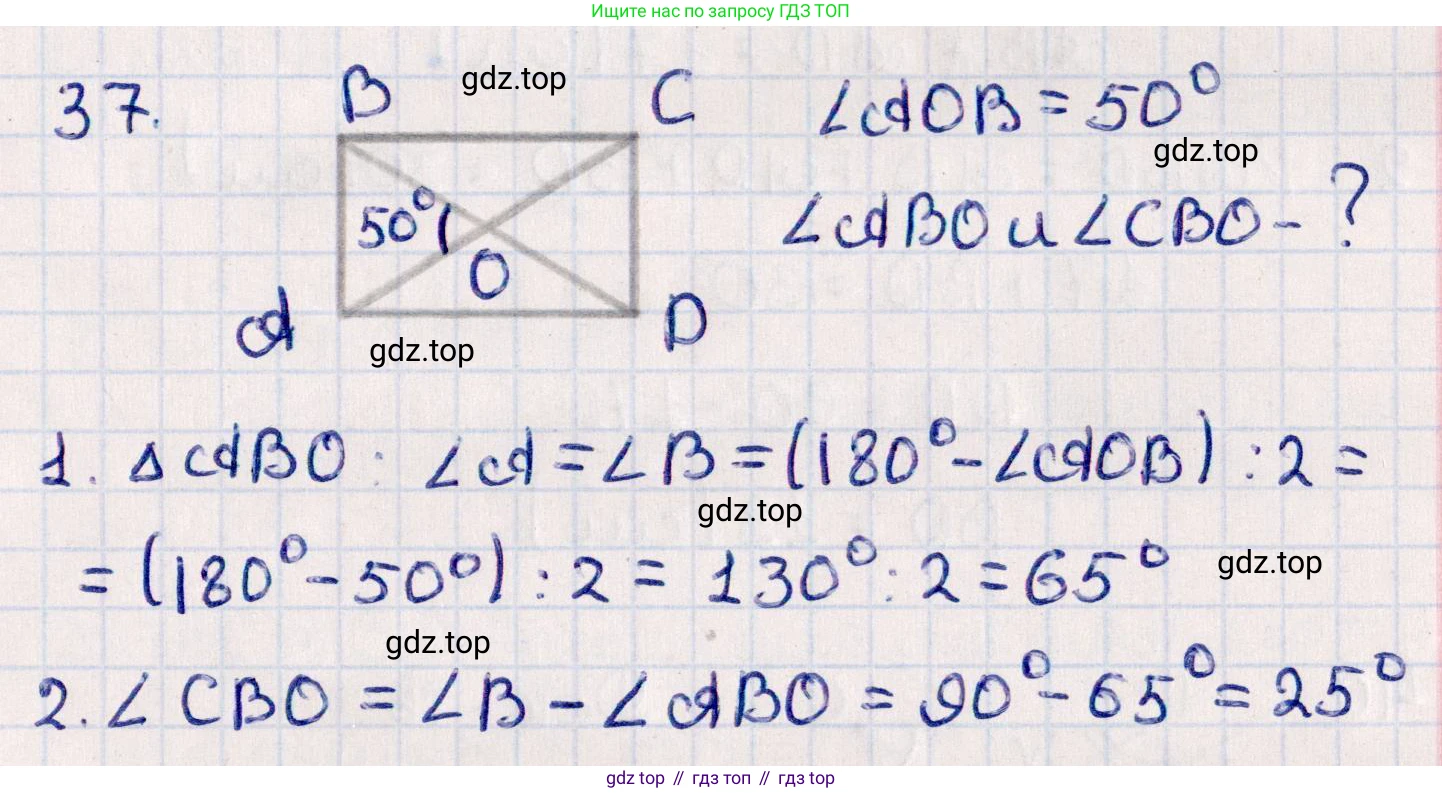 Ищите нас по запросу ГДЗ ТОП
37.
B
gdz.top
C
∠AOB = 50°
gdz.top
50°
∠ABO и ∠CBO - ?
O
A
D
gdz.top
1. ΔABO : ∠A = ∠B = (180° - ∠AOB) : 2 =
gdz.top
= (180° - 50°) : 2 = 130° : 2 = 65°
gdz.top
gdz.top
2. ∠CBO = ∠B - ∠ABO = 90° - 65° = 25°
gdz top // гдз топ // гдз top